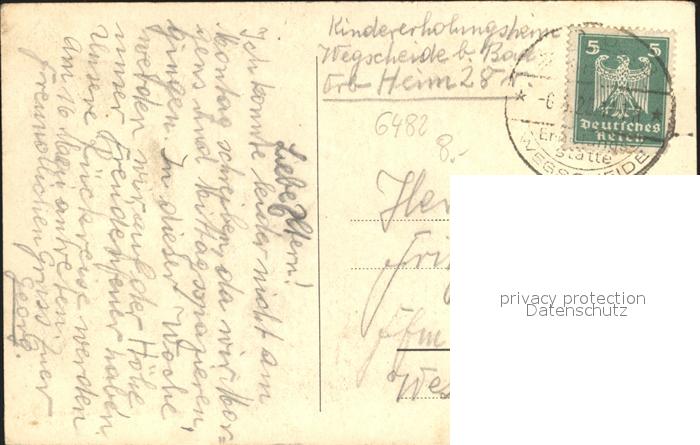 Kindererholungsheim
Wegscheide b. Bad
Orb Heim 28
5 5
Deutsches
Reich
stätte
WEGSCHEIDE
6482
8.-
Liebe Eltern!
Ich konnte leider nicht am
Montag schreiben, da wir Mor-
gens und Mittags spazieren
gingen. In dieser Woche
werden wir auf der Höhe
unser Freudenfeuer haben.
Unsere Rückreise werden
am 16 Mai antreten.
Freundlichen Gruss Euer
Georg.
Her
Fri
Ffm
Wes
privacy protection
Datenschutz